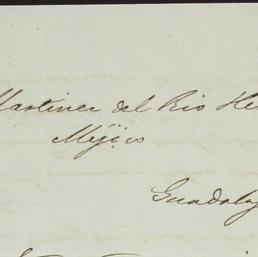 Martinez del Rio He
Méjico
Guadalaj